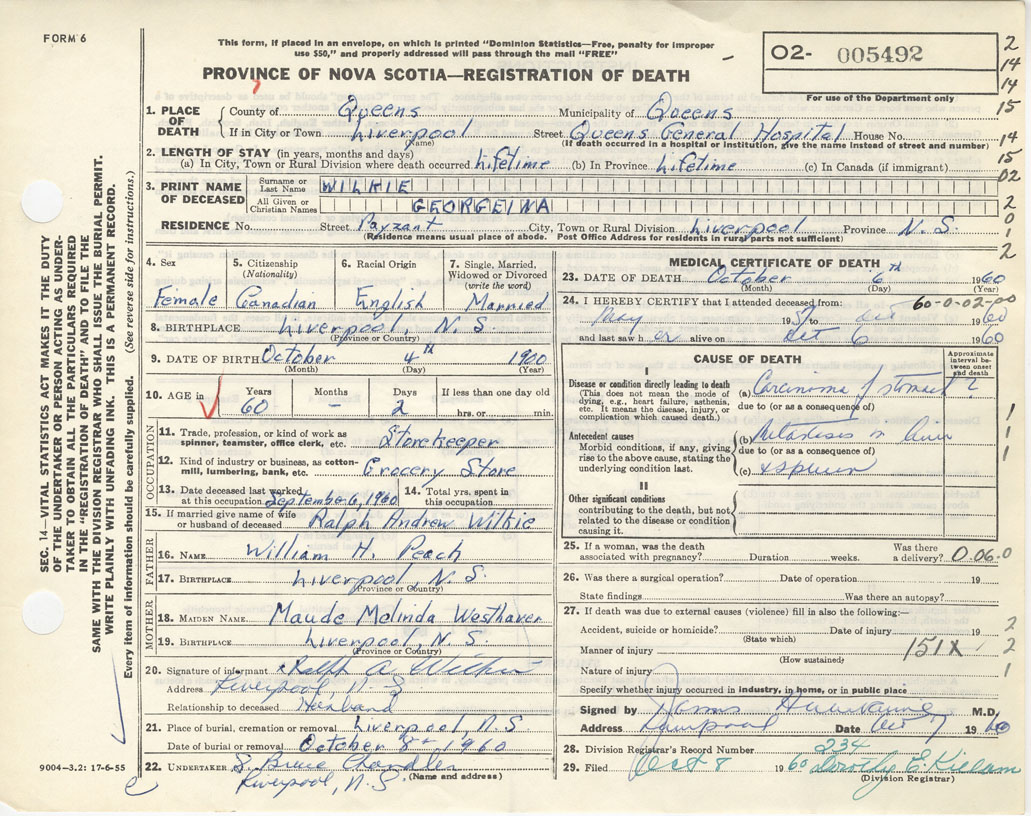 FORM 6
This form, if placed in an envelope, on which is printed "Dominion Statistics—Free, penalty for improper
use $50," and properly addressed will pass through the mail "FREE"
PROVINCE OF NOVA SCOTIA—REGISTRATION OF DEATH
O2- 005492
For use of the Department only
2
14
14
15
14
15
02
2
0
1
2
1. PLACE OF DEATH
County of Queens Municipality of Queens
If in City or Town Liverpool Street Queens General Hospital House No.
(Name) (If death occurred in a hospital or institution, give the name instead of street and number)
2. LENGTH OF STAY (in years, months and days)
(a) In City, Town or Rural Division where death occurred Lifetime (b) In Province Lifetime (c) In Canada (if immigrant)
3. PRINT NAME OF DECEASED
Surname or Last Name WILKIE
All Given or Christian Names GEORGEINA
RESIDENCE No. Street Payzant City, Town or Rural Division Liverpool Province N.S.
(Residence means usual place of abode. Post Office Address for residents in rural parts not sufficient)
4. Sex 5. Citizenship (Nationality) 6. Racial Origin 7. Single, Married, Widowed or Divorced (write the word)
Female Canadian English Married
8. BIRTHPLACE Liverpool, N.S.
(Province or Country)
9. DATE OF BIRTH October 4th 1900
(Month) (Day) (Year)
10. AGE in Years Months Days If less than one day old
60 — 2 hrs. or min.
OCCUPATION
11. Trade, profession, or kind of work as spinner, teamster, office clerk, etc. Storekeeper
12. Kind of industry or business, as cotton-mill, lumbering, bank, etc. Grocery Store
13. Date deceased last worked at this occupation September 6, 1960 14. Total yrs. spent in this occupation
15. If married give name of wife or husband of deceased Ralph Andrew Wilkie
FATHER
16. NAME William H. Peach
17. BIRTHPLACE Liverpool, N.S.
(Province or Country)
MOTHER
18. MAIDEN NAME Maude Melinda Westhaver
19. BIRTHPLACE Liverpool, N.S.
(Province or Country)
20. Signature of informant Ralph A. Wilkie
Address Liverpool, N.S
Relationship to deceased Husband
21. Place of burial, cremation or removal Liverpool N.S.
Date of burial or removal October 8th 1960
22. UNDERTAKER S. Bruce Chandler
(Name and address)
Liverpool, N.S.
9004—3.2: 17-6-55
MEDICAL CERTIFICATE OF DEATH
23. DATE OF DEATH October 6th 1960
(Month) (Day) (Year)
60-0-02-00
24. I HEREBY CERTIFY that I attended deceased from:
May 1957 to Oct 1960
and last saw her alive on Oct 6 1960
CAUSE OF DEATH
Approximate interval between onset and death
I
Disease or condition directly leading to death
(This does not mean the mode of dying, e.g., heart failure, asthenia, etc. It means the disease, injury, or complication which caused death.)
(a) Carcinoma of stomach ?
due to (or as a consequence of)
Antecedent causes
Morbid conditions, if any, giving rise to the above cause, stating the underlying condition last.
(b) Metastasis in liver
due to (or as a consequence of)
(c) & spleen
II
Other significant conditions
contributing to the death, but not related to the disease or condition causing it.
1
1
1
25. If a woman, was the death associated with pregnancy? Duration weeks. Was there a delivery? 0.06.0
26. Was there a surgical operation? Date of operation 19
State findings Was there an autopsy?
27. If death was due to external causes (violence) fill in also the following:—
Accident, suicide or homicide? Date of injury 19 2
(State which)
Manner of injury 151X 2
(How sustained)
Nature of injury 1
Specify whether injury occurred in industry, in home, or in public place
Signed by M.D.
Address Liverpool Date Oct 7 1960
28. Division Registrar's Record Number 234
29. Filed Oct 8 1960 Dorothy E. Killam
(Division Registrar)
SEC. 14—VITAL STATISTICS ACT MAKES IT THE DUTY
OF THE UNDERTAKER OR PERSON ACTING AS UNDER-
TAKER TO OBTAIN ALL THE PARTICULARS REQUIRED
IN THE "REGISTRATION OF DEATH" AND TO FILE THE
SAME WITH THE DIVISION REGISTRAR WHO SHALL ISSUE THE BURIAL PERMIT.
WRITE PLAINLY WITH UNFADING INK. THIS IS A PERMANENT RECORD.
Every item of information should be carefully supplied. (See reverse side for instructions.)